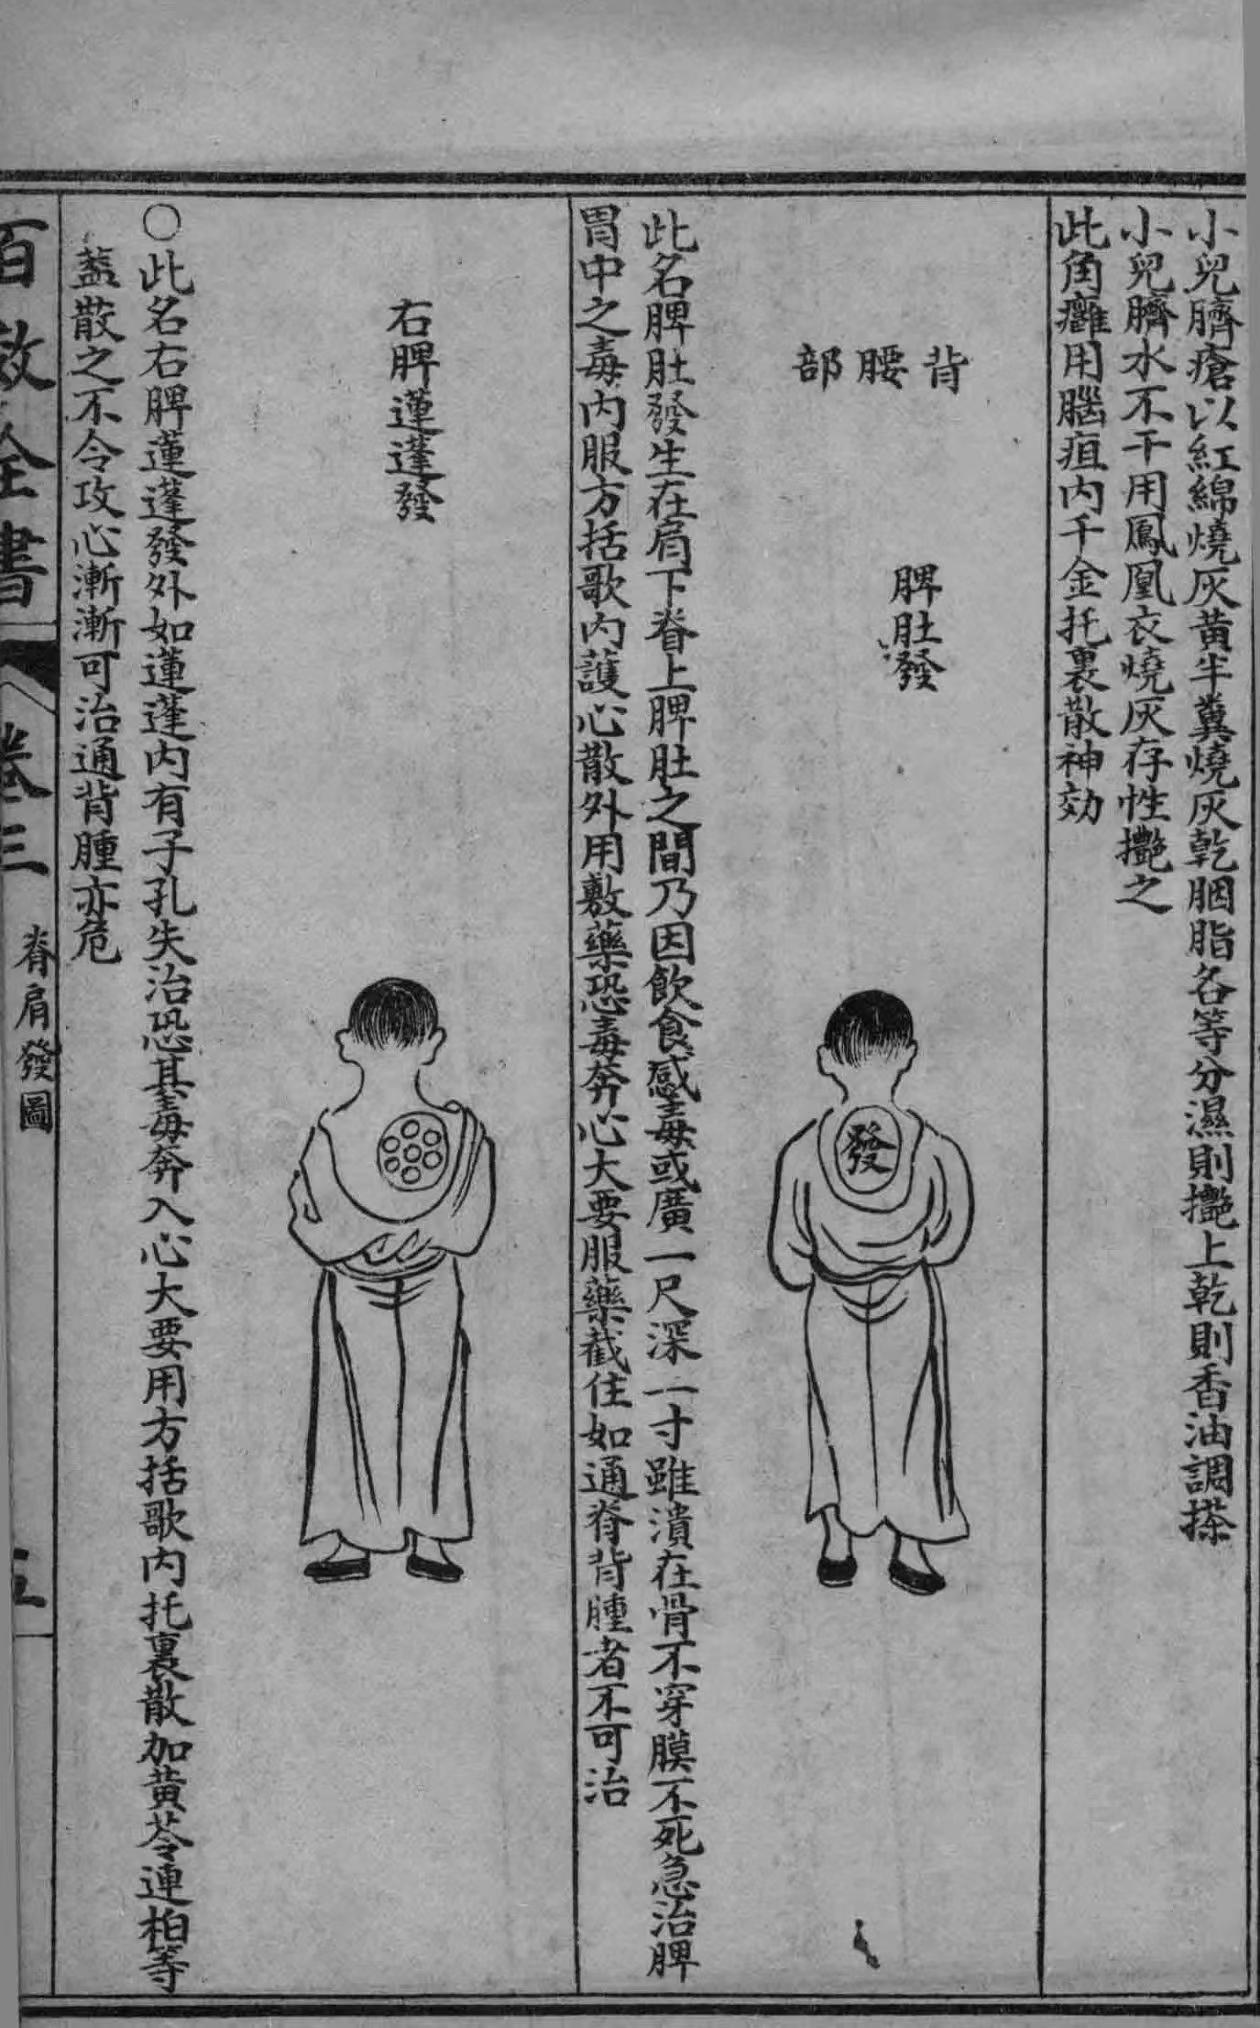 小兒臍瘡以紅綿燒灰黃牛糞燒灰乾胭脂各等分濕則摻上乾則香油調搽
小兒臍水不干用鳳凰衣燒灰存性摻之
此角癰用腦疽內千金托裏散神効
背腰部
脾肚發
發
此名脾肚發生在肩下脊上脾肚之間乃因飲食感毒或廣一尺深一寸雖潰在骨不穿膜不死急治脾
胃中之毒內服方括歌內護心散外用敷藥恐毒奔心大要服藥截住如通脊背腫者不可治
右脾蓮蓬發
〇此名右脾蓮蓬發外如蓮蓬內有子孔失治恐其毒奔入心大要用方括歌內托裏散加黃芩連柏等
蓋散之不令攻心漸漸可治通背腫亦危
百效全書
卷三
脊肩發圖
五